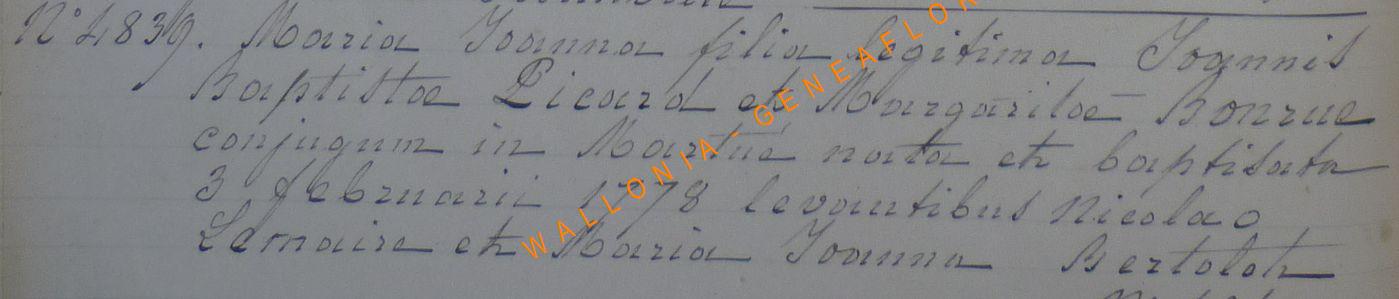 N° 4839. Maria Joanna filia legitima Joannis
Baptistae Picard et Margaritae Bonrue
conjugum in Martué nata et baptisata
3 februarii 1778 levantibus Nicolao
Lemaire et Maria Joanna Bertolet
WALLONIA GENEAFLOR